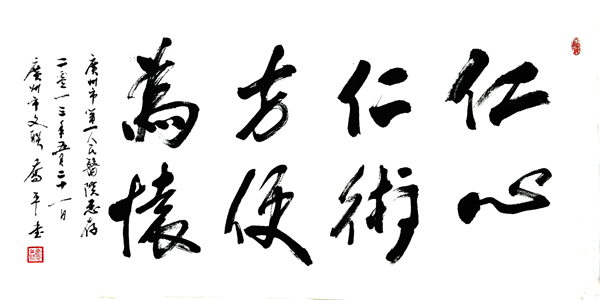 仁心
仁術
方便
為懷
廣州市第一人民醫院惠存
二零一三年五月二十一日
廣州市文聯喬平書